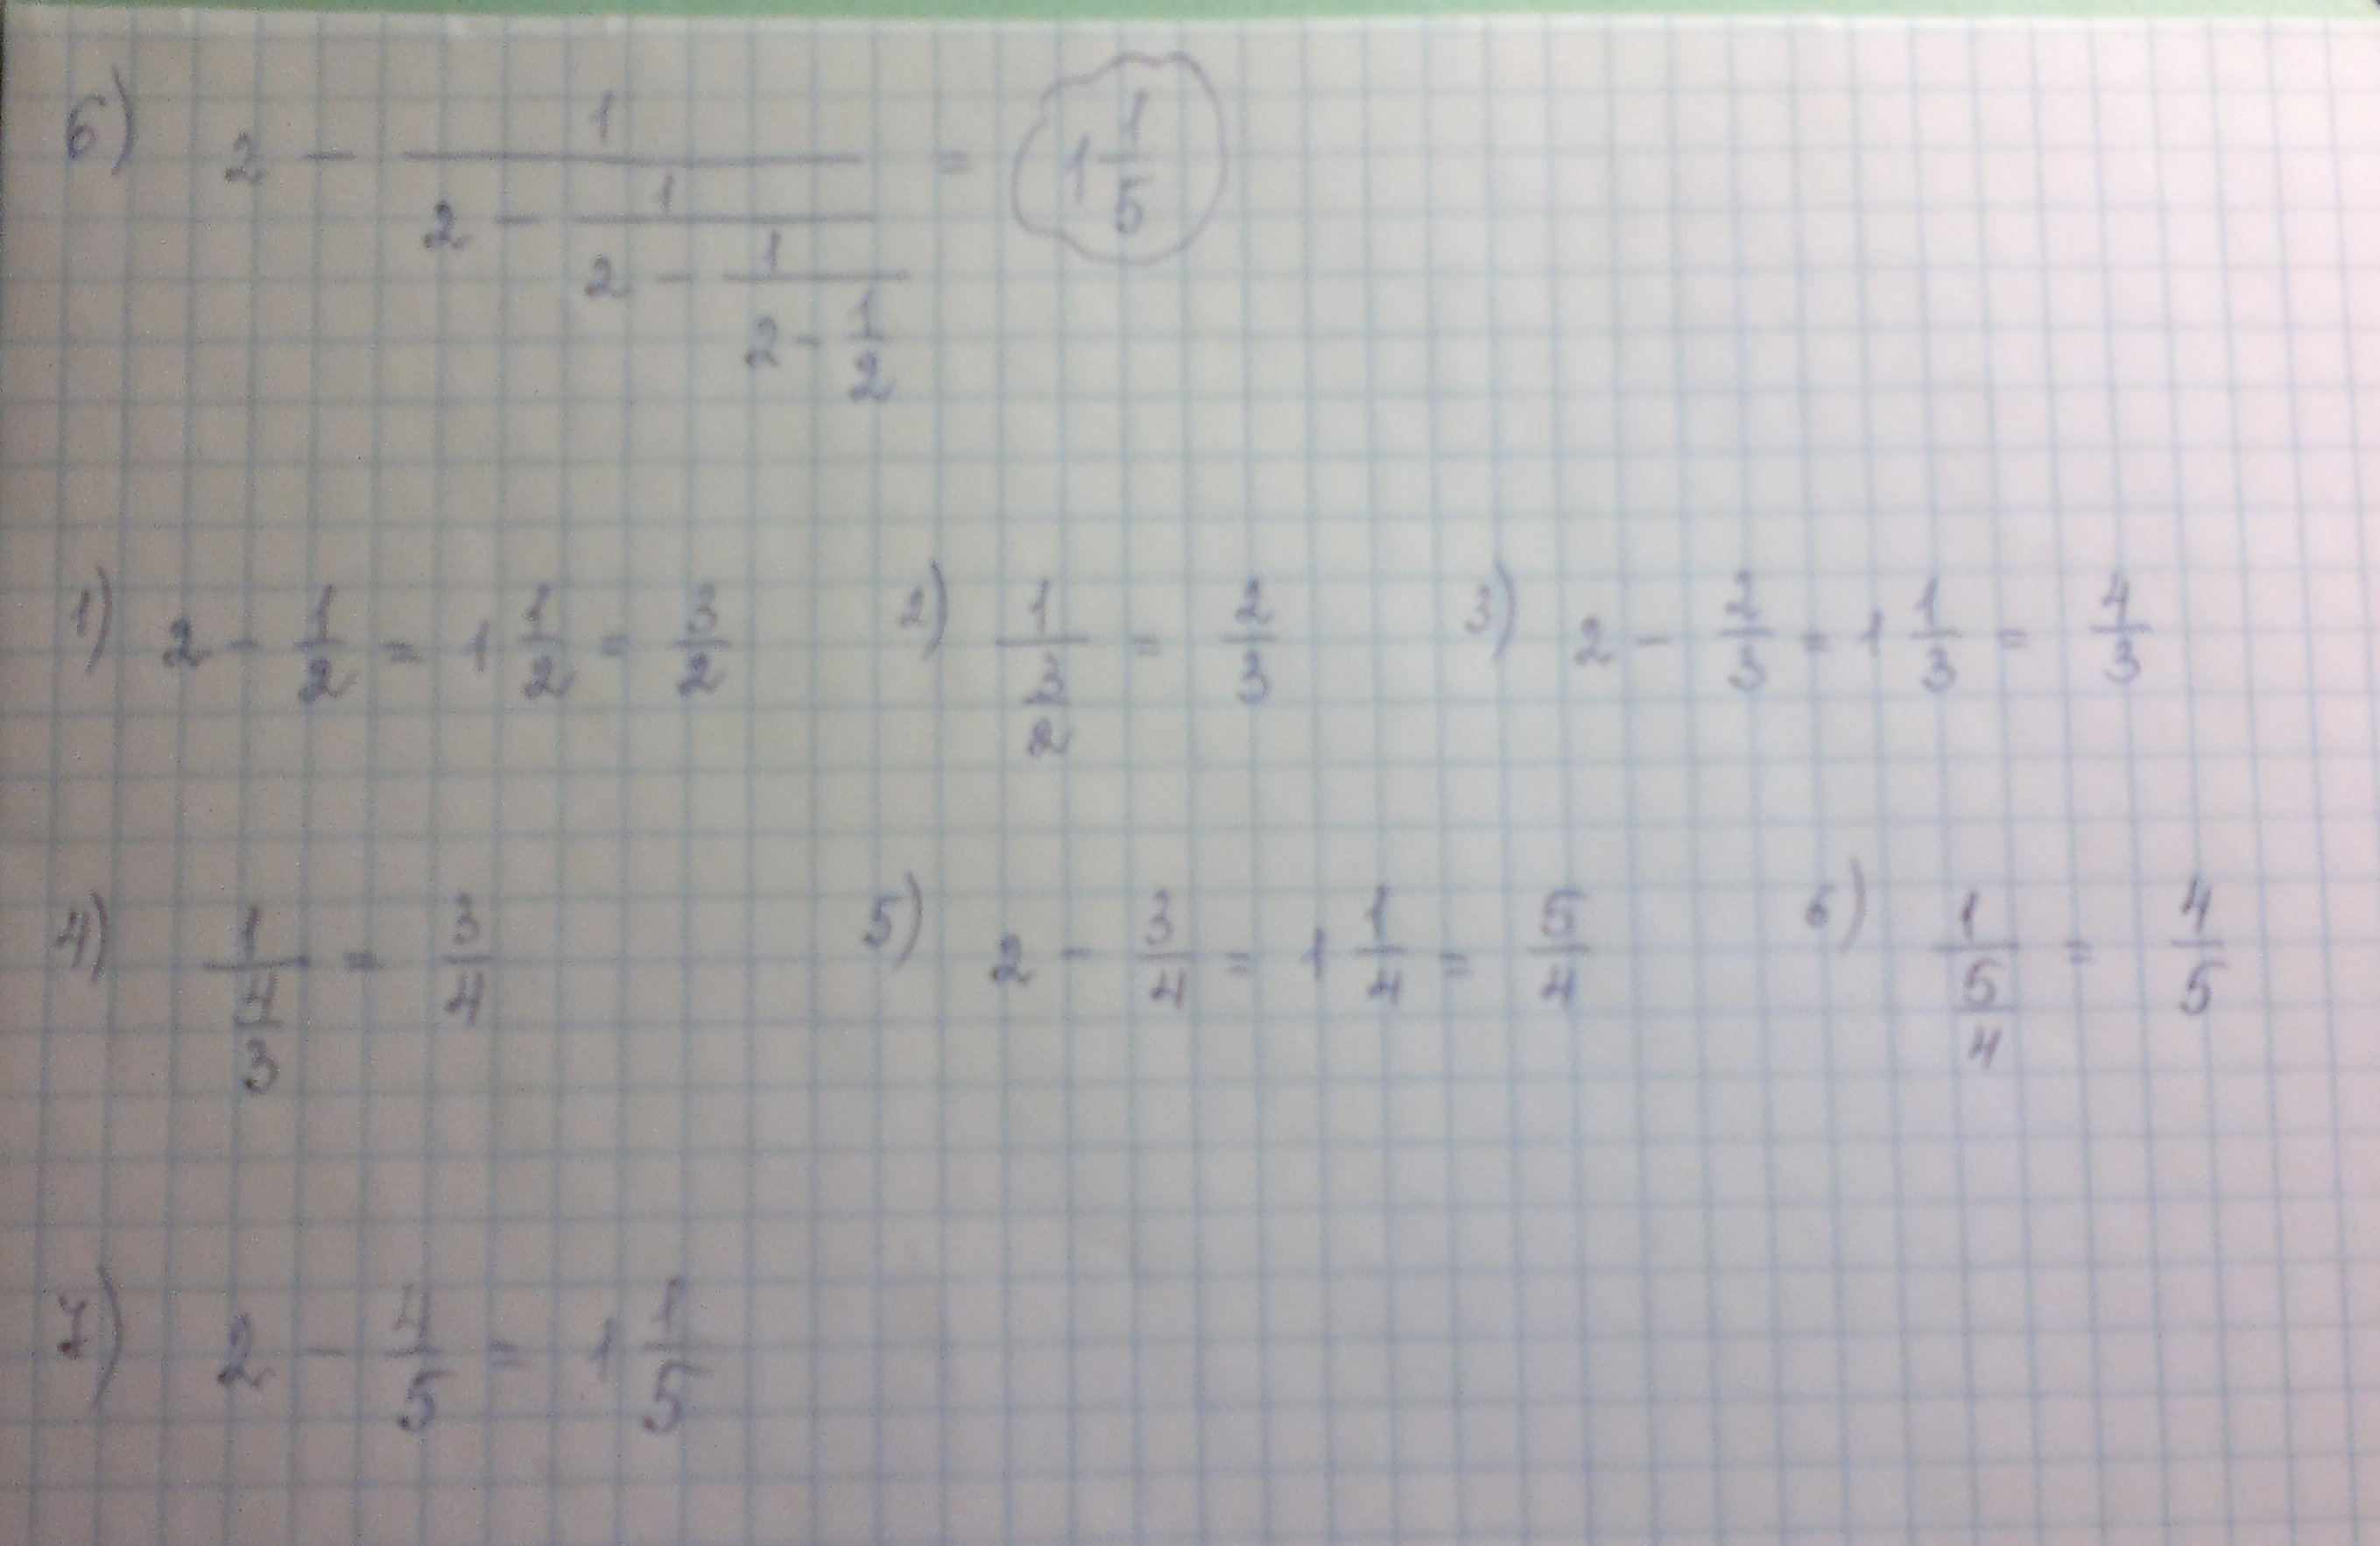 б) 2 - 1/(2 - 1/(2 - 1/(2 - 1/2))) = 1 1/5
1) 2 - 1/2 = 1 1/2 = 3/2 2) 1/(3/2) = 2/3 3) 2 - 2/3 = 1 1/3 = 4/3
4) 1/(4/3) = 3/4 5) 2 - 3/4 = 1 1/4 = 5/4 6) 1/(5/4) = 4/5
7) 2 - 4/5 = 1 1/5